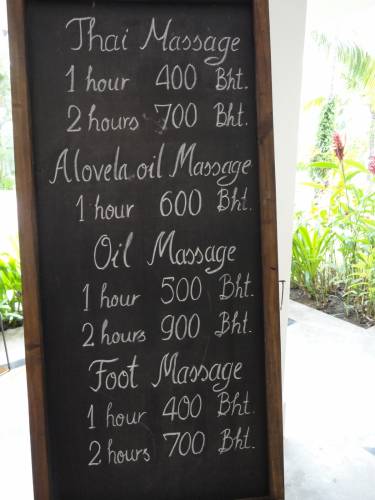 Thai Massage
1 hour 400 Bht.
2 hours 700 Bht.
Alovela oil Massage
1 hour 600 Bht.
Oil Massage
1 hour 500 Bht.
2 hours 900 Bht.
Foot Massage
1 hour 400 Bht.
2 hours 700 Bht.